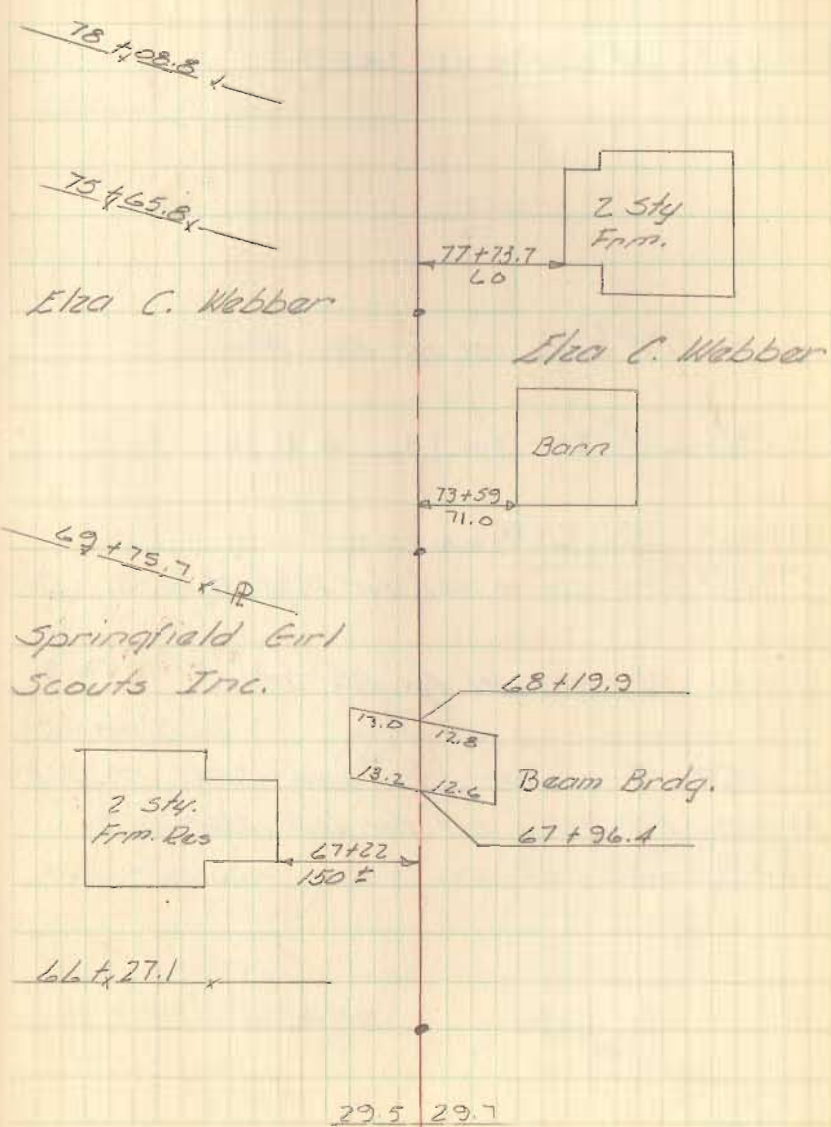 78+08.8
75+65.8
2 Sty
Frm.
77+73.7
60
Elza C. Webber
Elza C. Webber
Barn
73+59
71.0
69+75.7 PL
Springfield Girl
Scouts Inc.
68+19.9
13.0 12.8
13.2 12.6
Beam Brdg.
67+96.4
2 Sty.
Frm. Res
67+22
150 ±
66+27.1
29.5 29.7